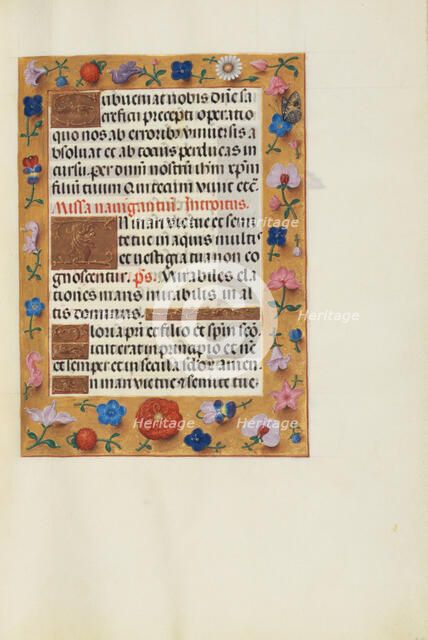 Subueniat nobis dñe sa
crificii precepti operatio
quo nos ab erroribꝰ vniuersis a
bsoluat et ab
cursu. per dñm nostrum ihm xp̃m
filium tuum Qui tecum viuit etc.
Missa nauigantium. Introitus.
In mari vie tue et semi
te tue in aquis multis
et vestigia tua non co
gnoscentur. ps. Mirabiles ela
tiones maris mirabilis in al
tis dominus.
Gloria pri et filio et spiri sco.
Sicut erat in principio et nc̃
et semper et in secula sclor amen.
In mari vie tue et semite tue.
Heritage
Heritage
Heritage
Heritage
Heritage
Heritage